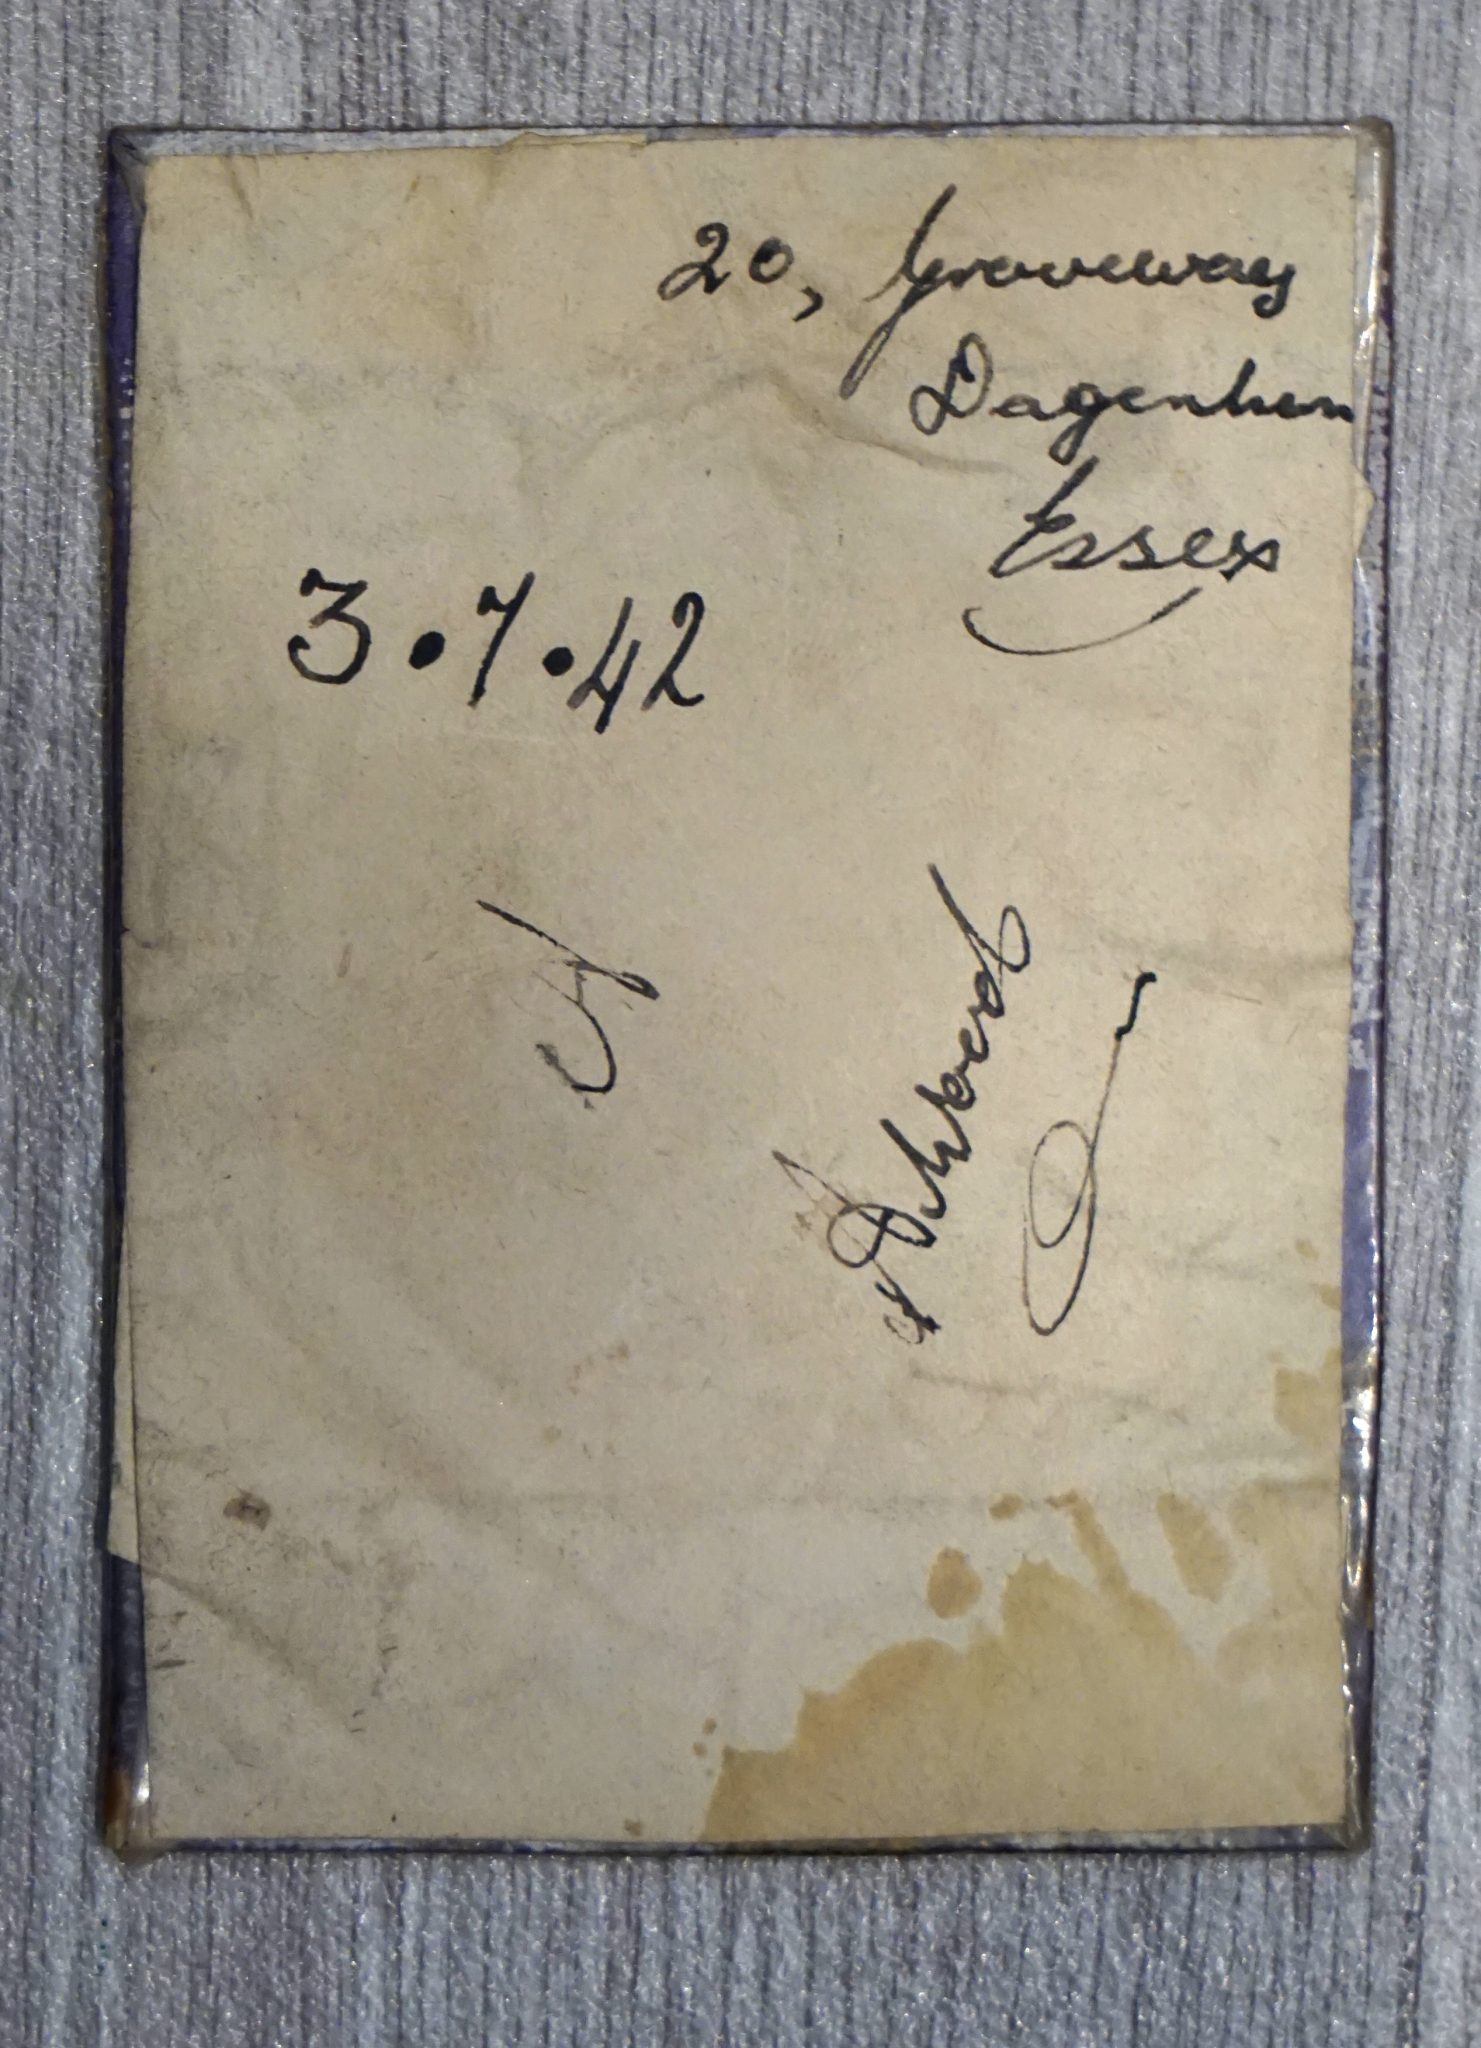 20, Groveway
Dagenham
Essex
3.7.42